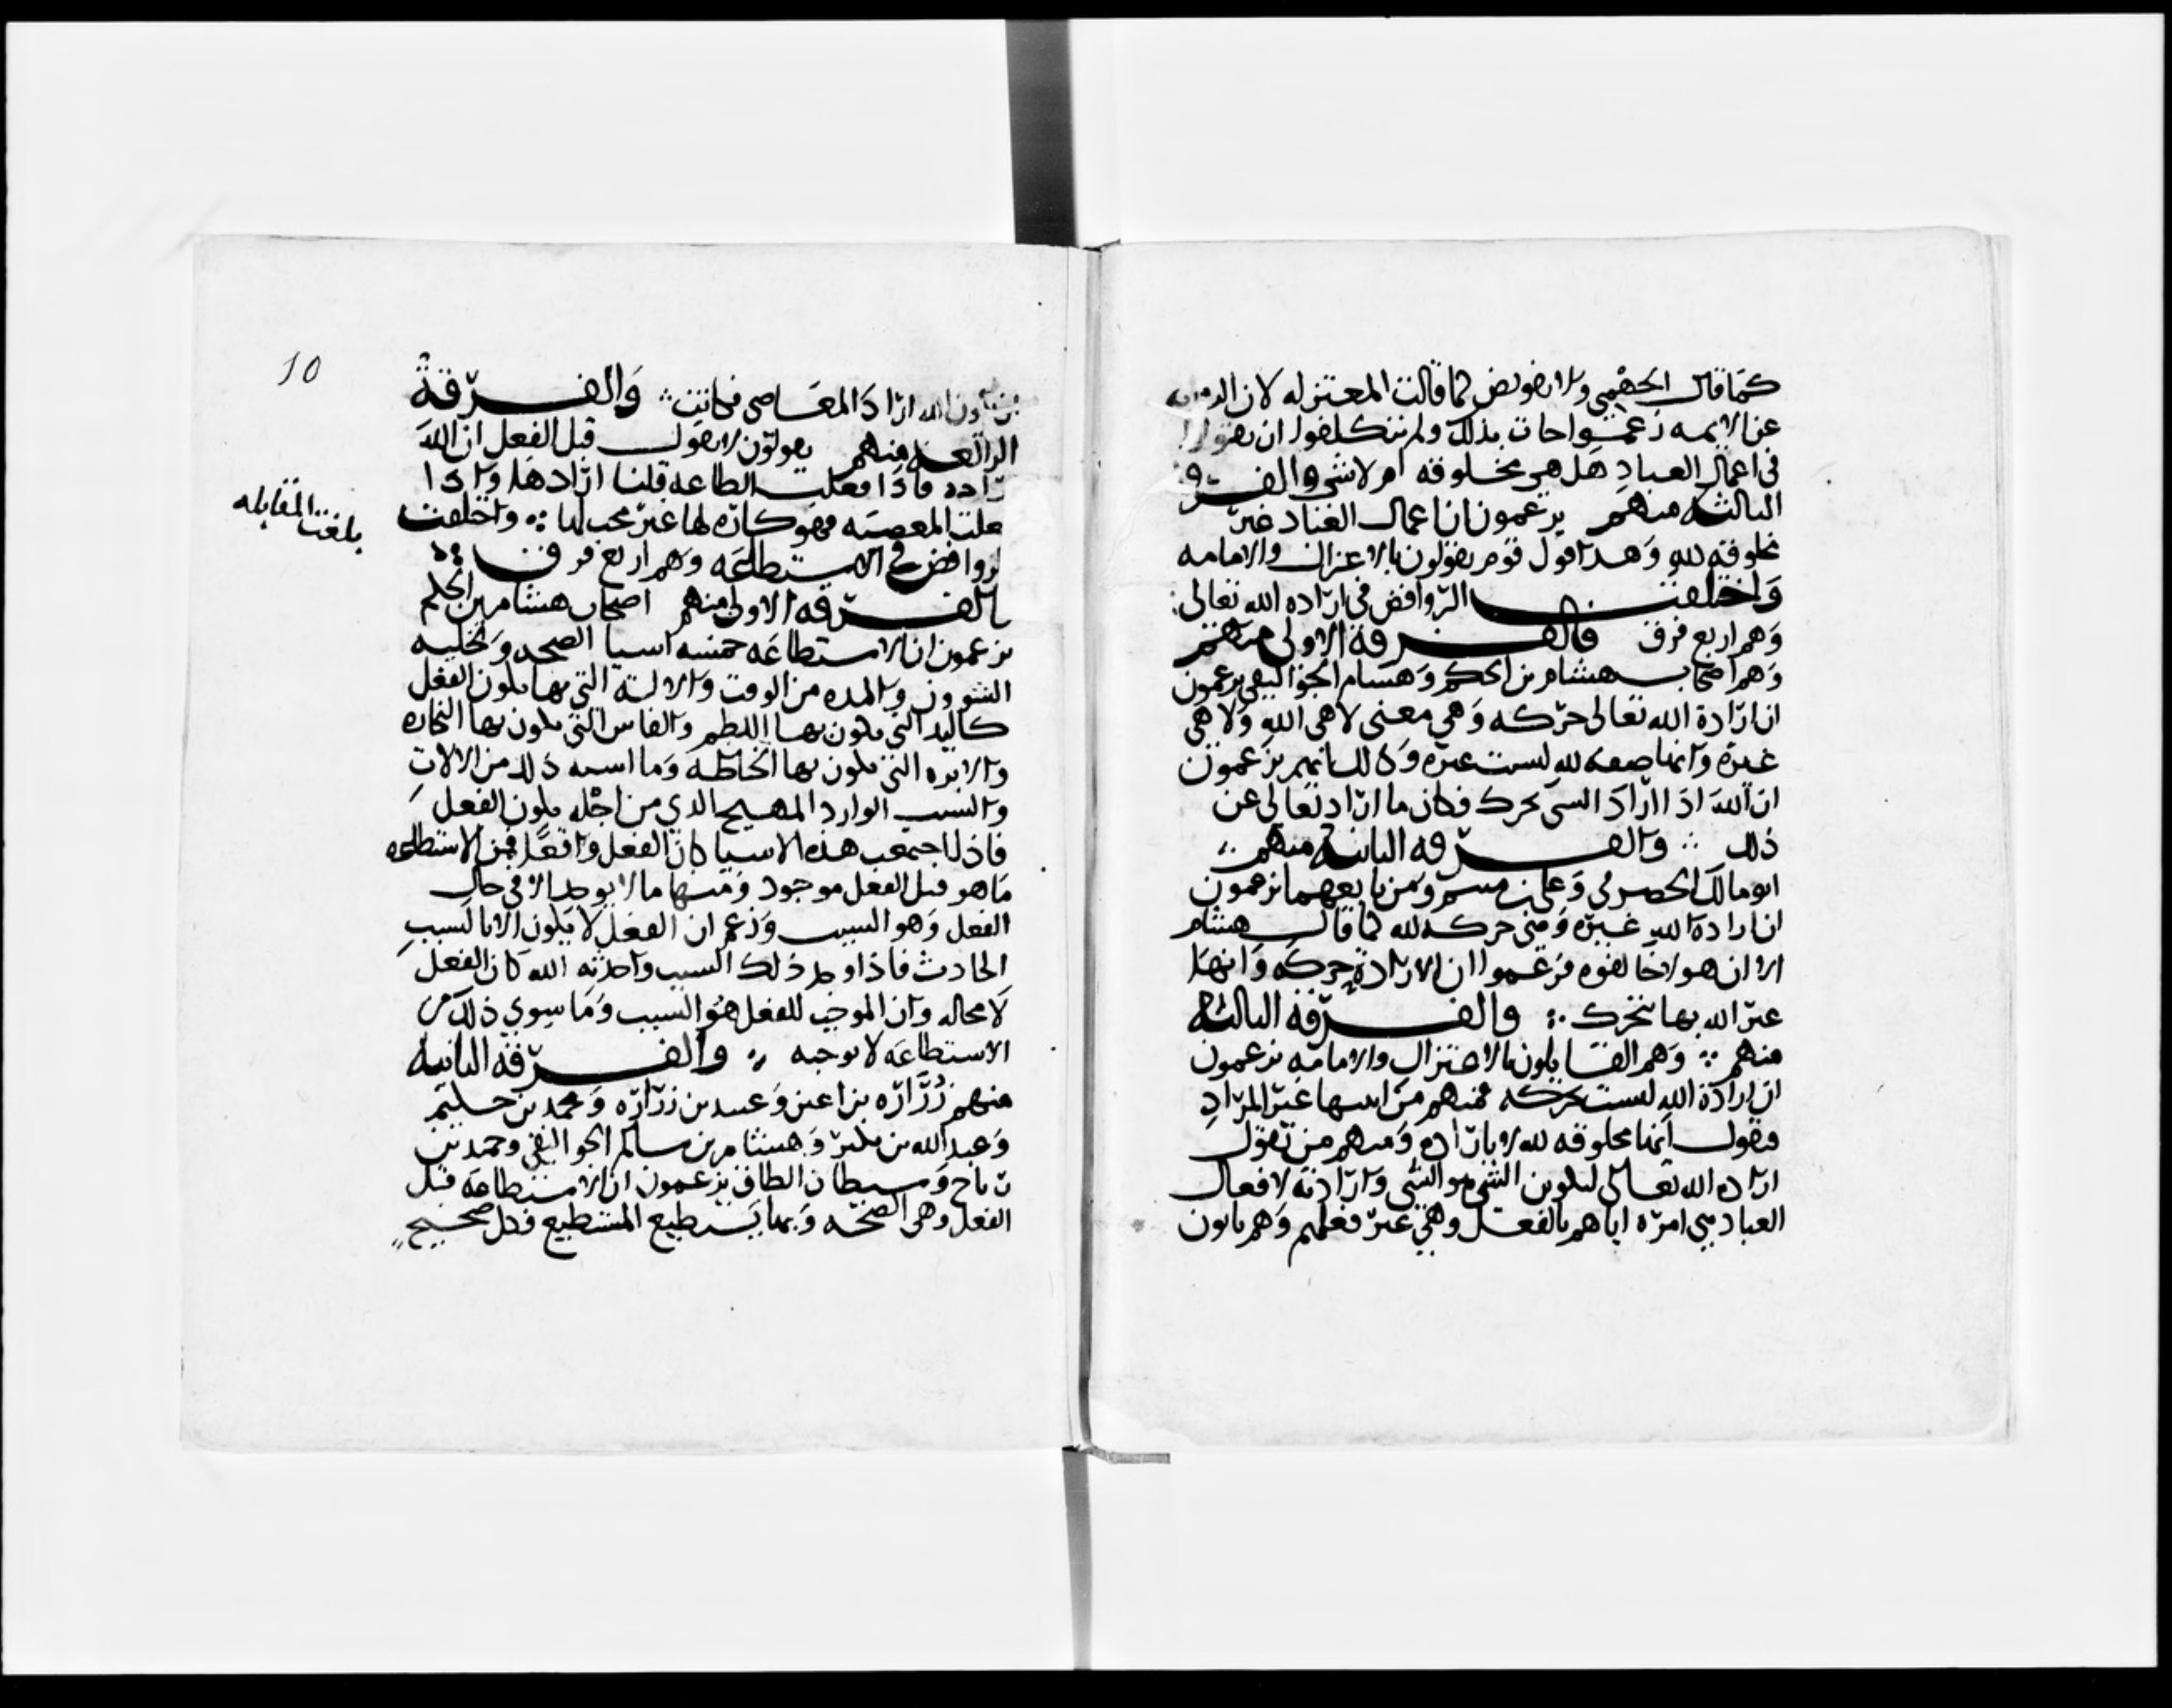 كما قال الجهمي ولا تفويض كما قالت المعتزله لان الروايه
عن الايمه زعموا جات بذلك ولم يتكلفوا ان يقولوا
في اعمال العباد هل هي مخلوقه ام لا شي والفرقه
الثالثه منهم يزعمون ان اعمال العباد غير
مخلوقه لله وهذا قول قوم يقولون بالاعتزال والامامه
واختلفت الروافض في اراده الله تعالى
وهم اربع فرق فالفرقة الاولى منهم
وهم اصحاب هشام بن الحكم وهشام الجواليقي يزعمون
ان ارادة الله تعالى حركه وهي معنى لا هي الله ولا هي
غيره وانها صفه لله ليست غيره وذلك انهم يزعمون
ان الله اذا اراد الشي تحرك فكان ما اراد تعالى عن
ذلك والفرقه الثانيه منهم
ابو مالك الحضرمي وعلي بن ميسم ومن تابعهما يزعمون
ان ارادة الله غيره وهي حركه لله كما قال هشام
الا ان هولا خالفوه فزعموا ان الارادة حركه وانها
غير الله بها يتحرك والفرقه الثالثه
منهم وهم القايلون بالاعتزال والامامه يزعمون
ان ارادة الله ليست بحركه فمنهم من اثبتها غير المراد
فيقول انها مخلوقه لله لا باراده ومنهم من يقول
اراده الله تعالى لتكوين الشي هو الشي وارادته لافعال
العباد هي امره اياهم بالفعل وهي غير فعلهم وهم يابون
ان يكون الله اراد المعاصي فكانت والفرقة
الرابعه منهم يقولون لا نقول قبل الفعل ان الله
اراده فاذا فعلت الطاعه قلنا ارادها واذا
فعلت المعصيه فهو كاره لها غير محب لها واختلفت
الروافض في الاستطاعه وهم اربع فرق
فالفرقه الاولى منهم اصحاب هشام بن الحكم
يزعمون ان الاستطاعه خمسه اشيا الصحه وتخليه
الشوون والمده من الوقت والاله التي بها يكون الفعل
كاليد التي يكون بها اللطم والفاس التي يكون بها النجاره
والابره التي يكون بها الخاطه وما اشبه ذلك من الالات
والسبب الوارد المهيج الذي من اجله يكون الفعل
فاذا اجتمعت هذه الاشيا كان الفعل واقعا فمن الاستطاعه
ما هو قبل الفعل موجود ومنها ما لا يوجد الا في حال
الفعل وهو السبب وزعم ان الفعل لا يكون الا بالسبب
الحادث فاذا وجد ذلك السبب واحدثه الله كان الفعل
لا محاله وان الموجب للفعل هو السبب وما سوى ذلك من
الاستطاعه لا يوجبه والفرقه الثانيه
منهم زراره بن اعين وعبيد بن زراره ومحمد بن حكيم
وعبد الله بن بكير وهشام بن سالم الجواليقي وحميد بن
رباح وشيطان الطاق يزعمون ان الاستطاعه قبل
الفعل وهي الصحه وبها يستطيع المستطيع فكل صحيح
10
بلغت المقابله